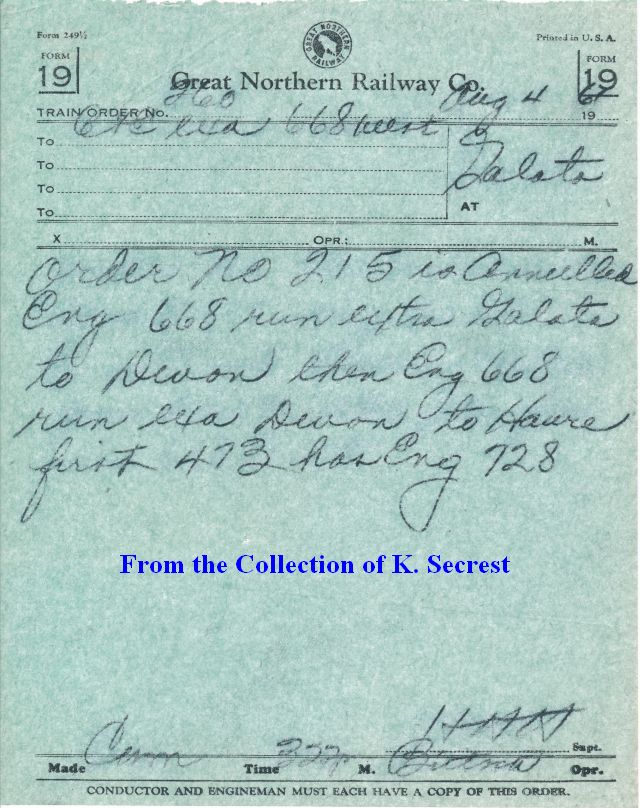 Form 249½
Printed in U. S. A.
GREAT NORTHERN RAILWAY
FORM 19
FORM 19
Great Northern Railway Co.
TRAIN ORDER No. 260 Aug 4 19
To C&E exa 668 west
To
To
To
Galata
AT
X OPR.: M.
Order No 215 is Annulled
Eng 668 run extra Galata
to Devon then Eng 668
run exa Devon to Havre
first 473 has Eng 728
From the Collection of K. Secrest
Supt.
Made Com Time 322 M. Opr.
CONDUCTOR AND ENGINEMAN MUST EACH HAVE A COPY OF THIS ORDER.